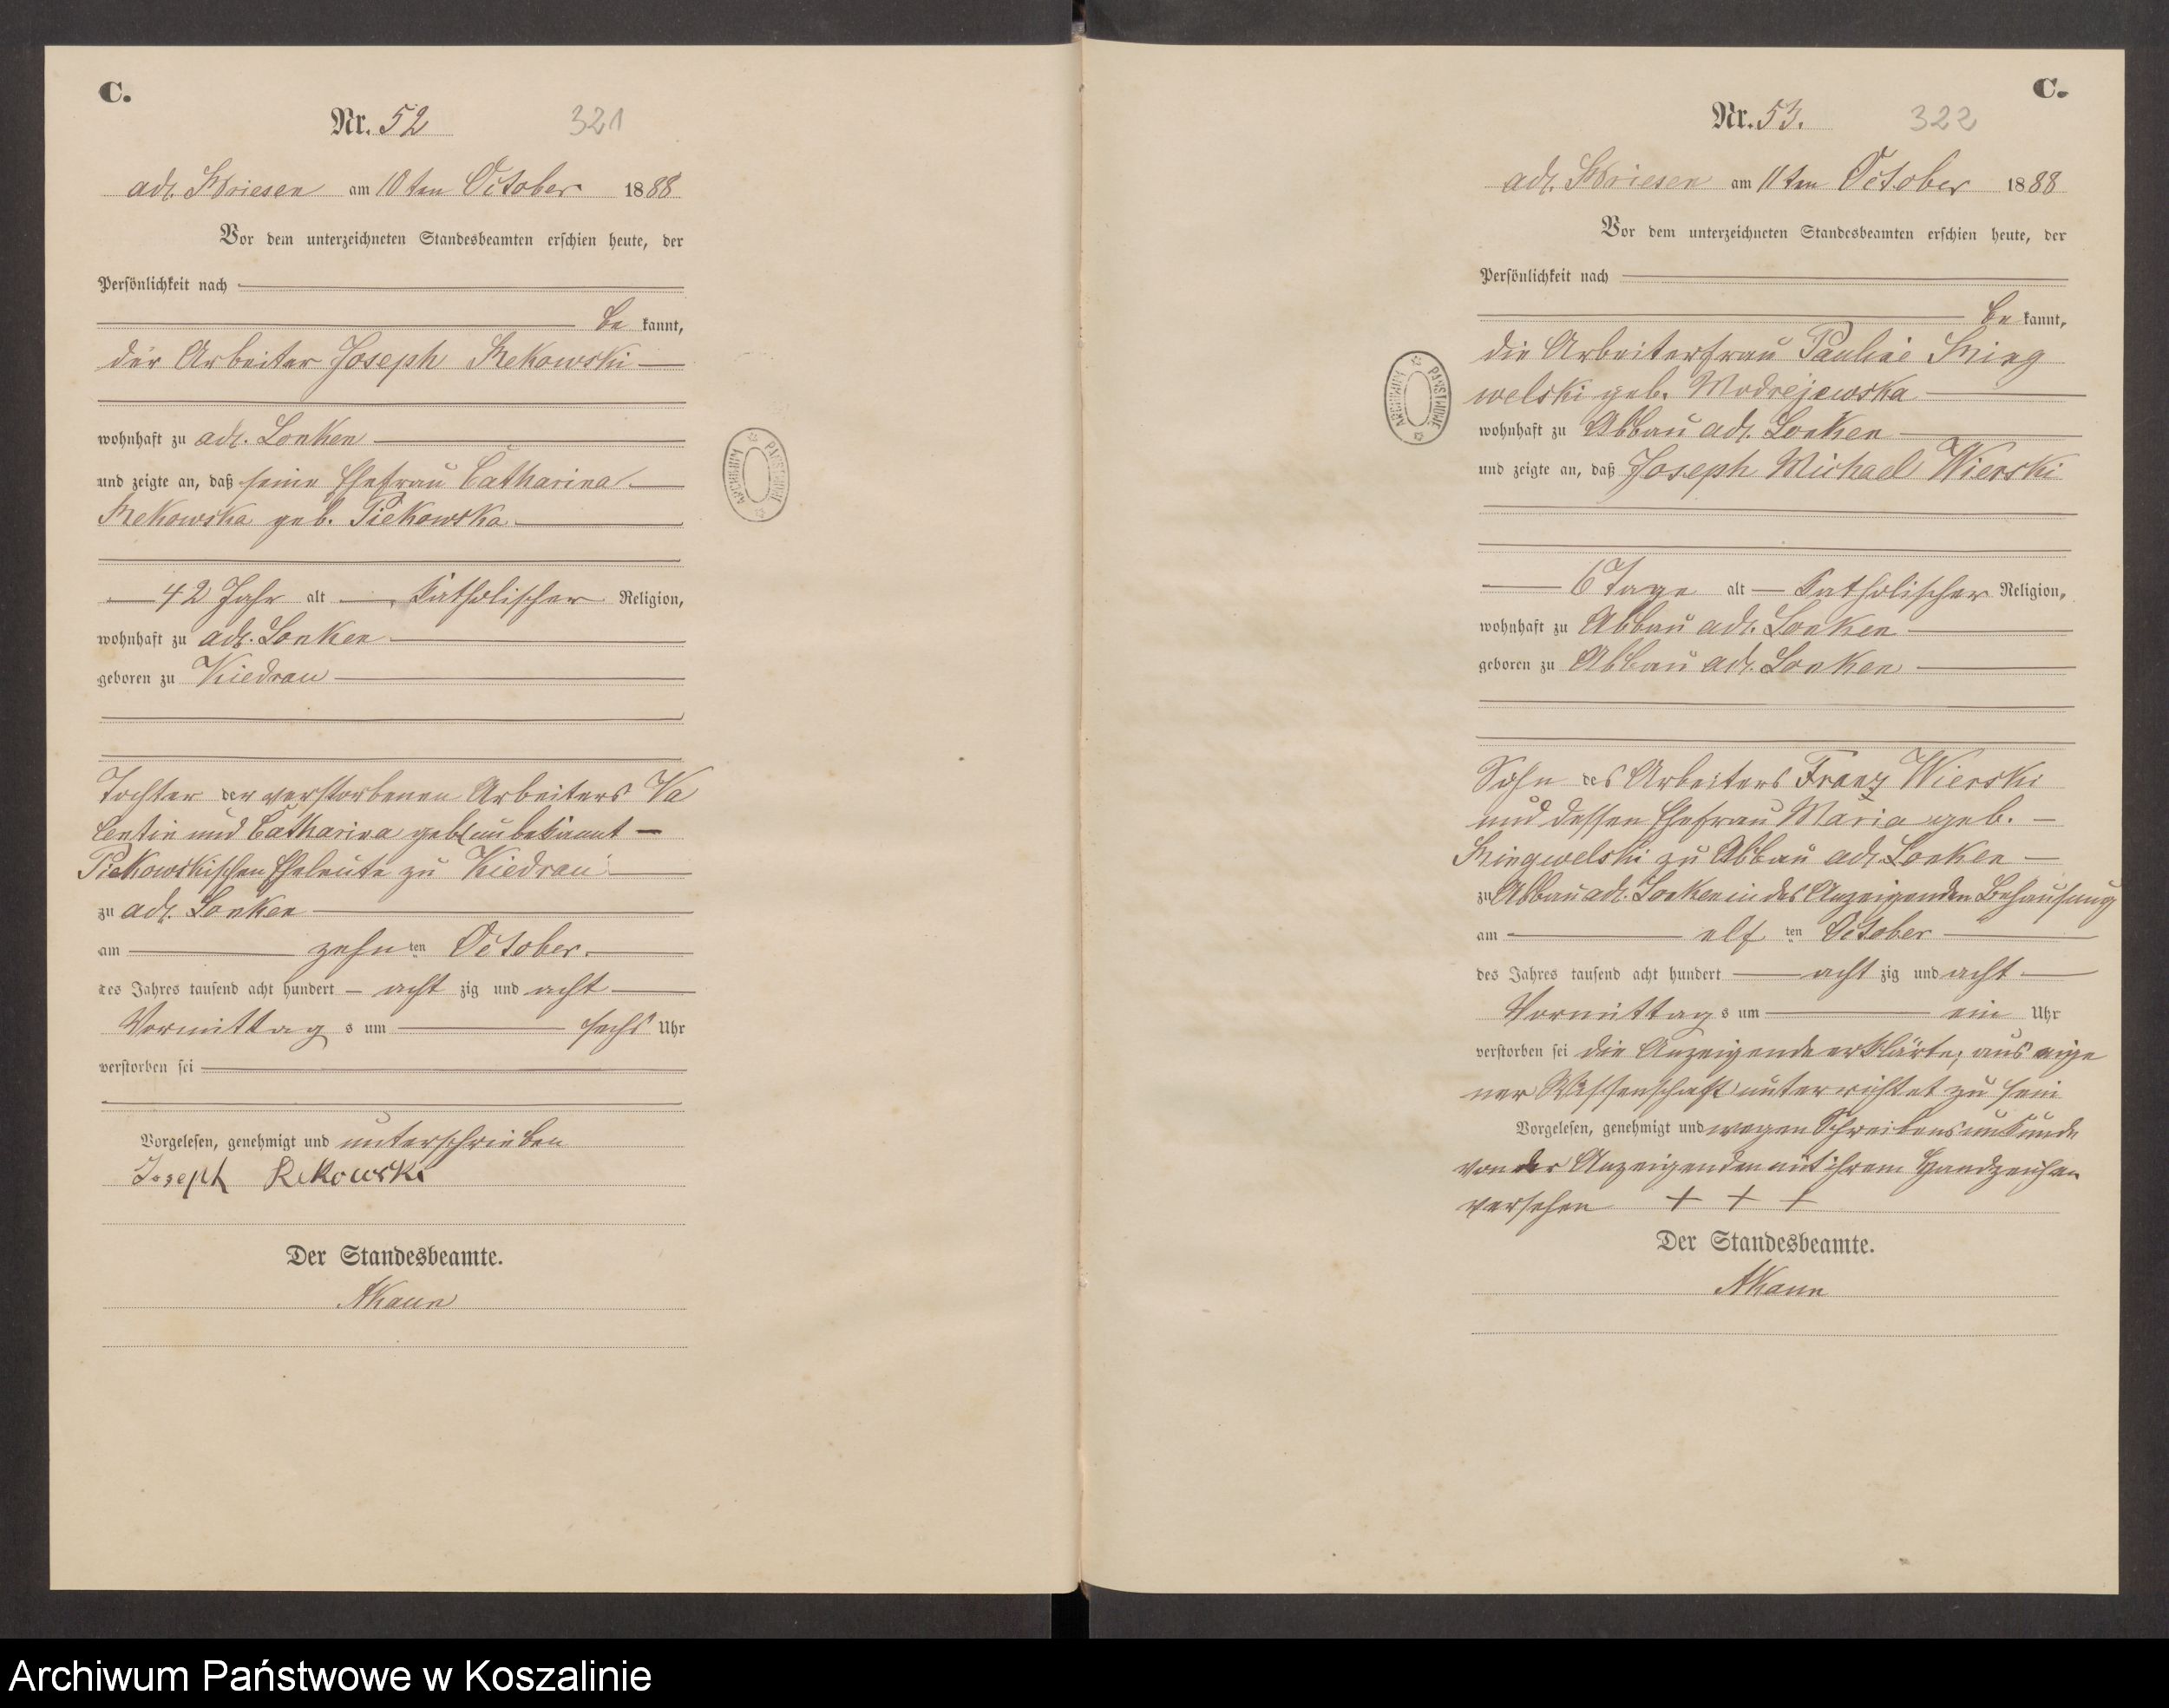 C.
Nr. 52
321
adl. Briesen am 10ten October 1888
Vor dem unterzeichneten Standesbeamten erschien heute, der
Persönlichkeit nach
be kannt,
der Arbeiter Joseph Rekowski
wohnhaft zu adl. Lonken
und zeigte an, daß seine Ehefrau Catharina
Rekowska geb. Piekowska
42 Jahr alt katholischer Religion,
wohnhaft zu adl. Lonken
geboren zu Kiedrau
Tochter der verstorbenen Arbeiters Va
lentin und Catharina geb. unbekannt
Piekowskischen Eheleute zu Kiedrau
zu adl. Lonken
am zehnten October
des Jahres tausend acht hundert acht zig und acht
Vormittags um sechs Uhr
verstorben sei
Vorgelesen, genehmigt und unterschrieben
Joseph Rekowski
Der Standesbeamte.
ARCHIWUM PAŃSTWOWE
C.
Nr. 53.
322
adl. Briesen am 11ten October 1888
Vor dem unterzeichneten Standesbeamten erschien heute, der
Persönlichkeit nach
be kannt,
die Arbeiterfrau Pauline
welski geb. Modrejewska
wohnhaft zu Abbau adl. Lonken
und zeigte an, daß Joseph Michael Wierski
6 Tage alt katholischer Religion,
wohnhaft zu Abbau adl. Lonken
geboren zu Abbau adl. Lonken
Sohn des Arbeiters Franz Wierski
und dessen Ehefrau Maria geb.
zu Abbau adl. Lonken
zu Abbau adl. Lonken in des Anzeigenden Behausung
am elften October
des Jahres tausend acht hundert acht zig und acht
Vormittags um ein Uhr
verstorben sei die Anzeigende erklärte, aus eige
ner Wissenschaft unterrichtet zu sein
Vorgelesen, genehmigt und wegen Schreibensunkunde
von der Anzeigenden mit ihrem Handzeichen
versehen + + +
Der Standesbeamte.
ARCHIWUM PAŃSTWOWE
Archiwum Państwowe w Koszalinie